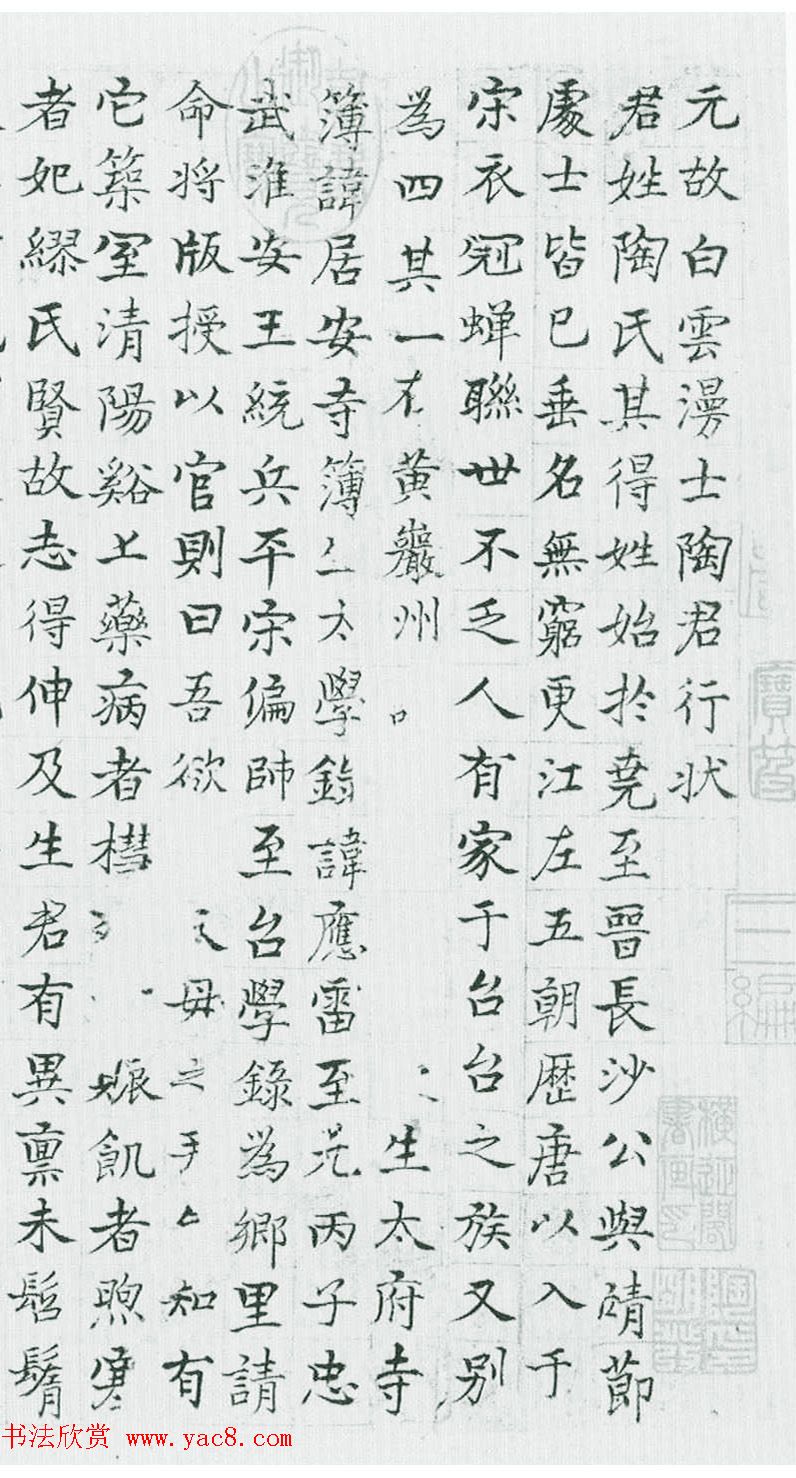 元故白雲漫士陶君行狀
君姓陶氏其得姓始於堯至晉長沙公與靖節
處士皆已垂名無窮更江左五朝歷唐以入于
宋衣冠蟬聯世不乏人有家于台台之族又别
為四其一在黃巖州 生太府寺
簿諱居安寺簿生太學錄諱應雷至元丙子忠
武淮安王統兵平宋偏帥至台學錄為鄉里請
命將版授以官則曰吾欲 母之手 知有
它築室清陽谿上藥病者槥 賑飢者煦寒
者妃繆氏賢故志得伸及生君有異稟未髫鬌
三編
書法欣賞 www.yac8.com